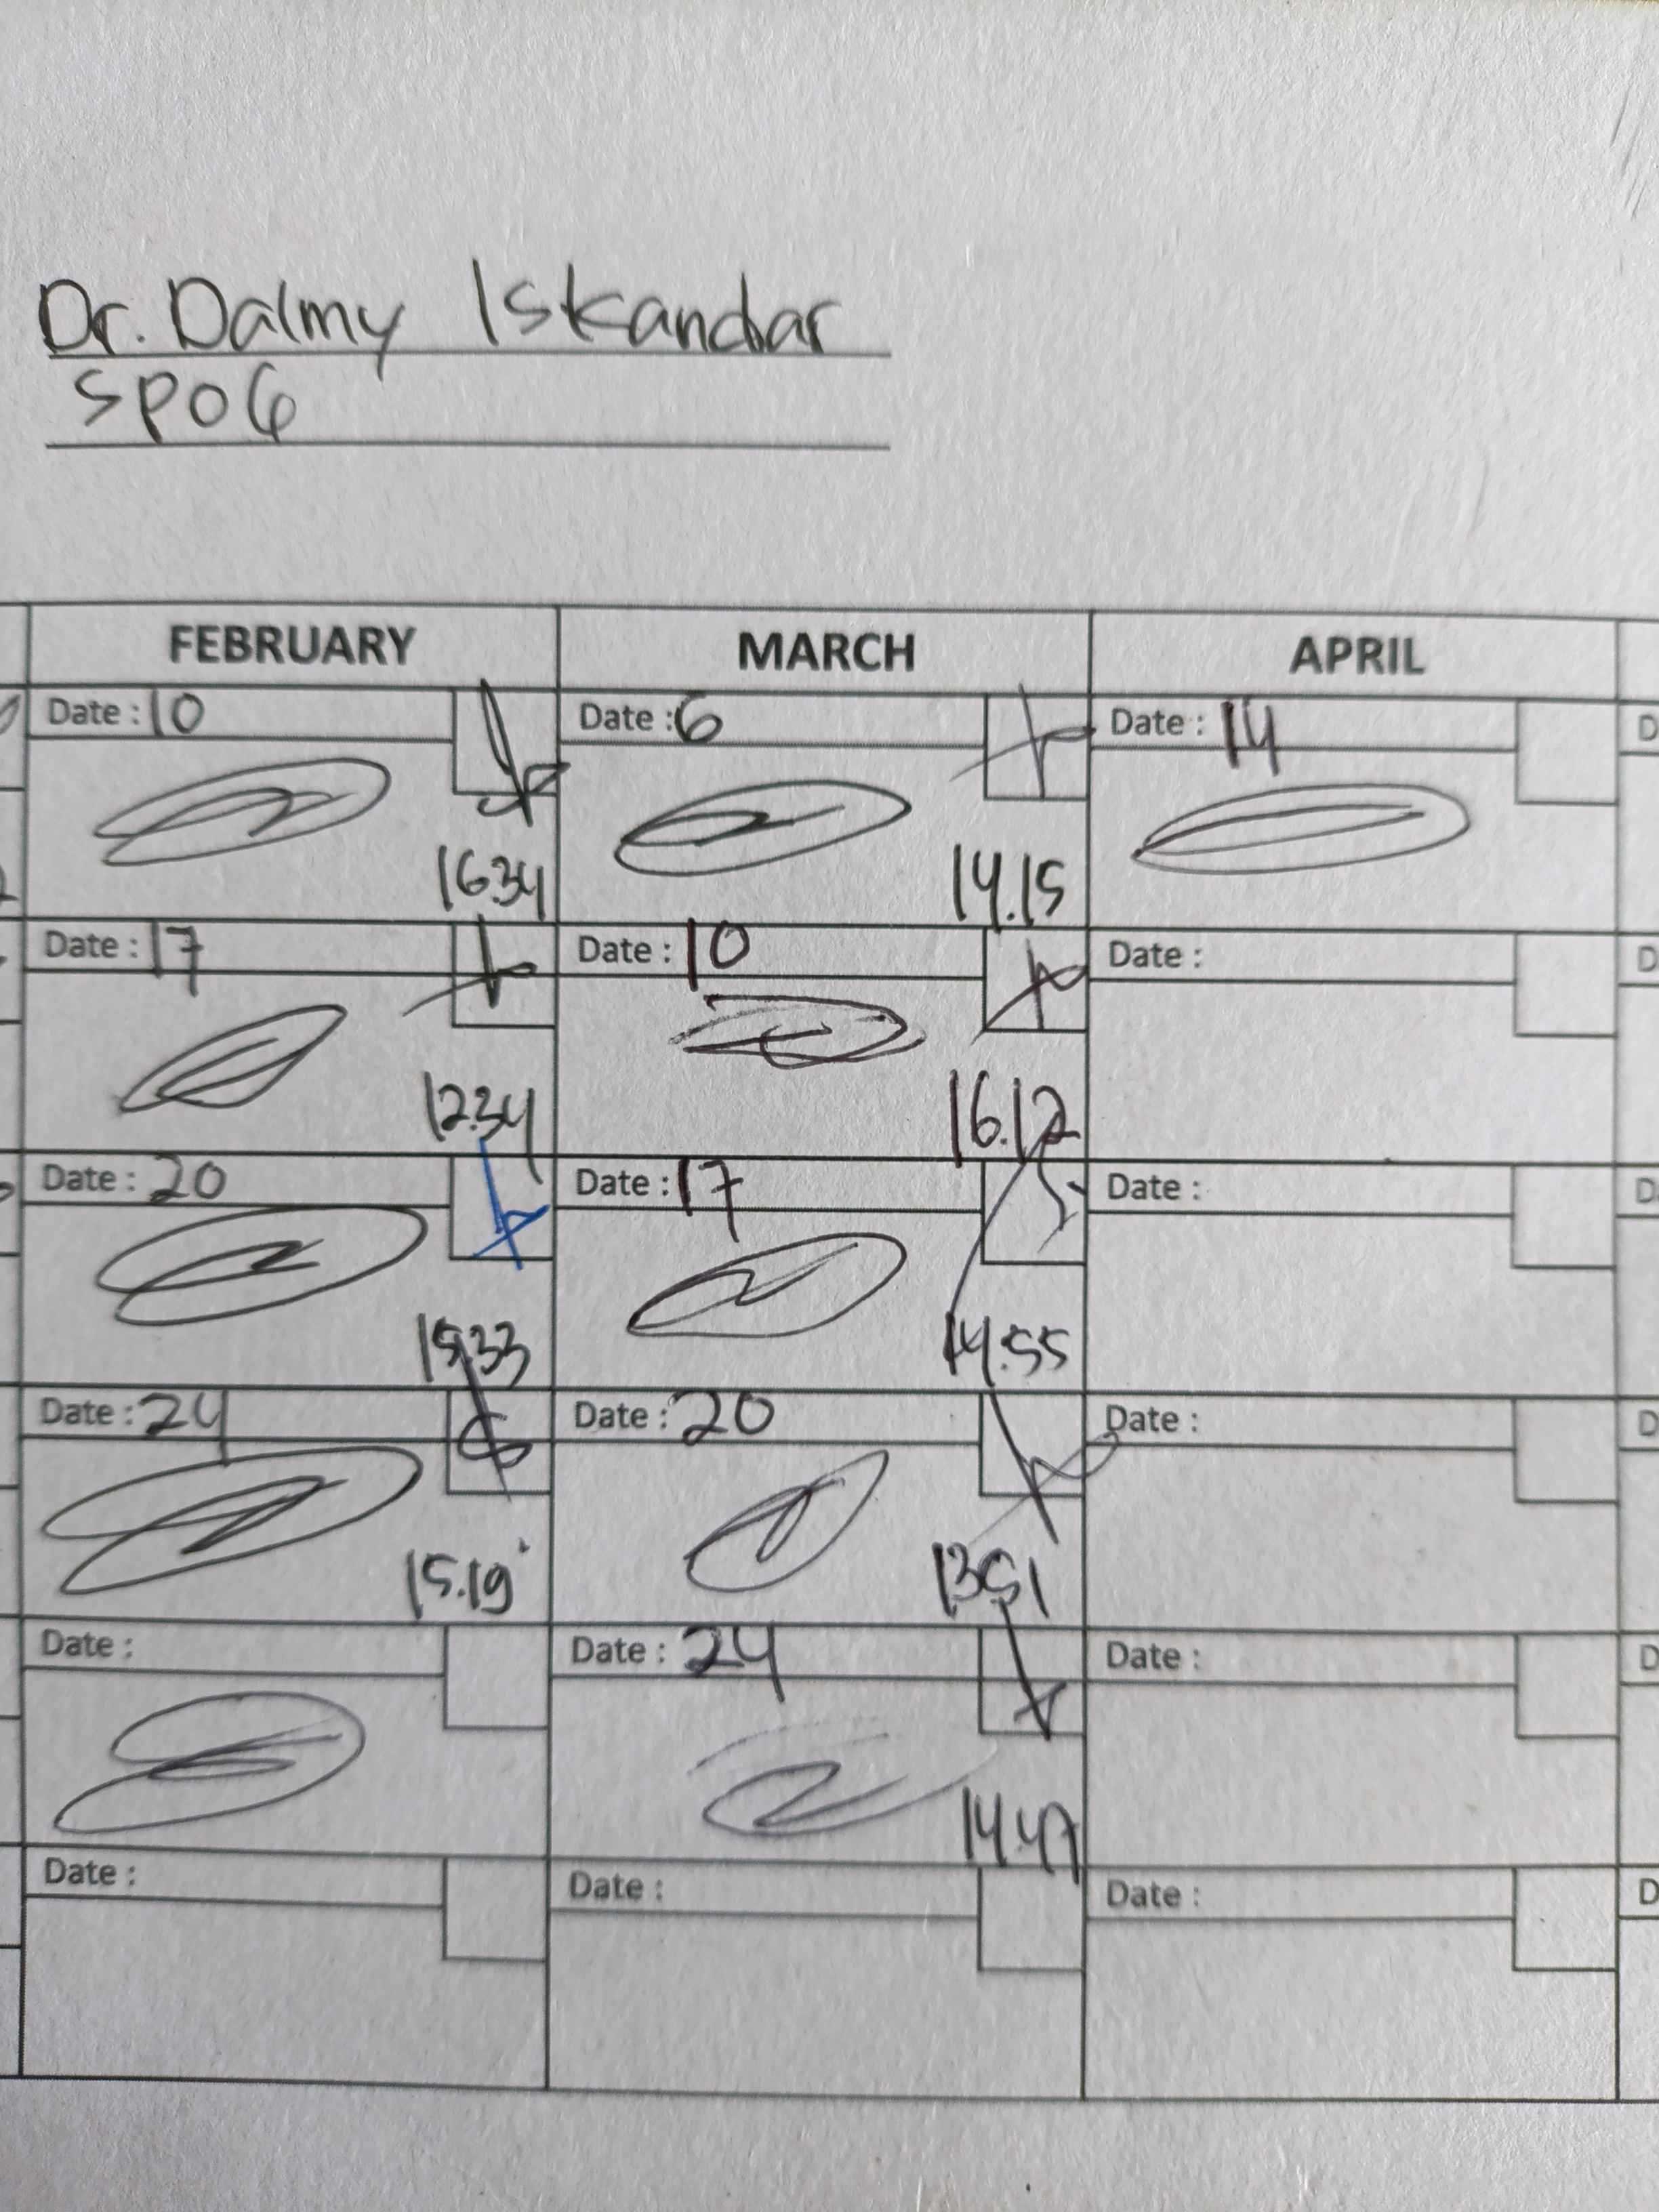 Dr. Dalmy Iskandar
SPOG
FEBRUARY MARCH APRIL
Date : 10 Date : 6 Date : 14
16.34 14.15
Date : 17 Date : 10 Date :
12.34 16.12
Date : 20 Date : 17 Date :
15.33 14.55
Date : 24 Date : 20 Date :
15.19 13.51
Date : Date : 24 Date :
14.47
Date : Date : Date :